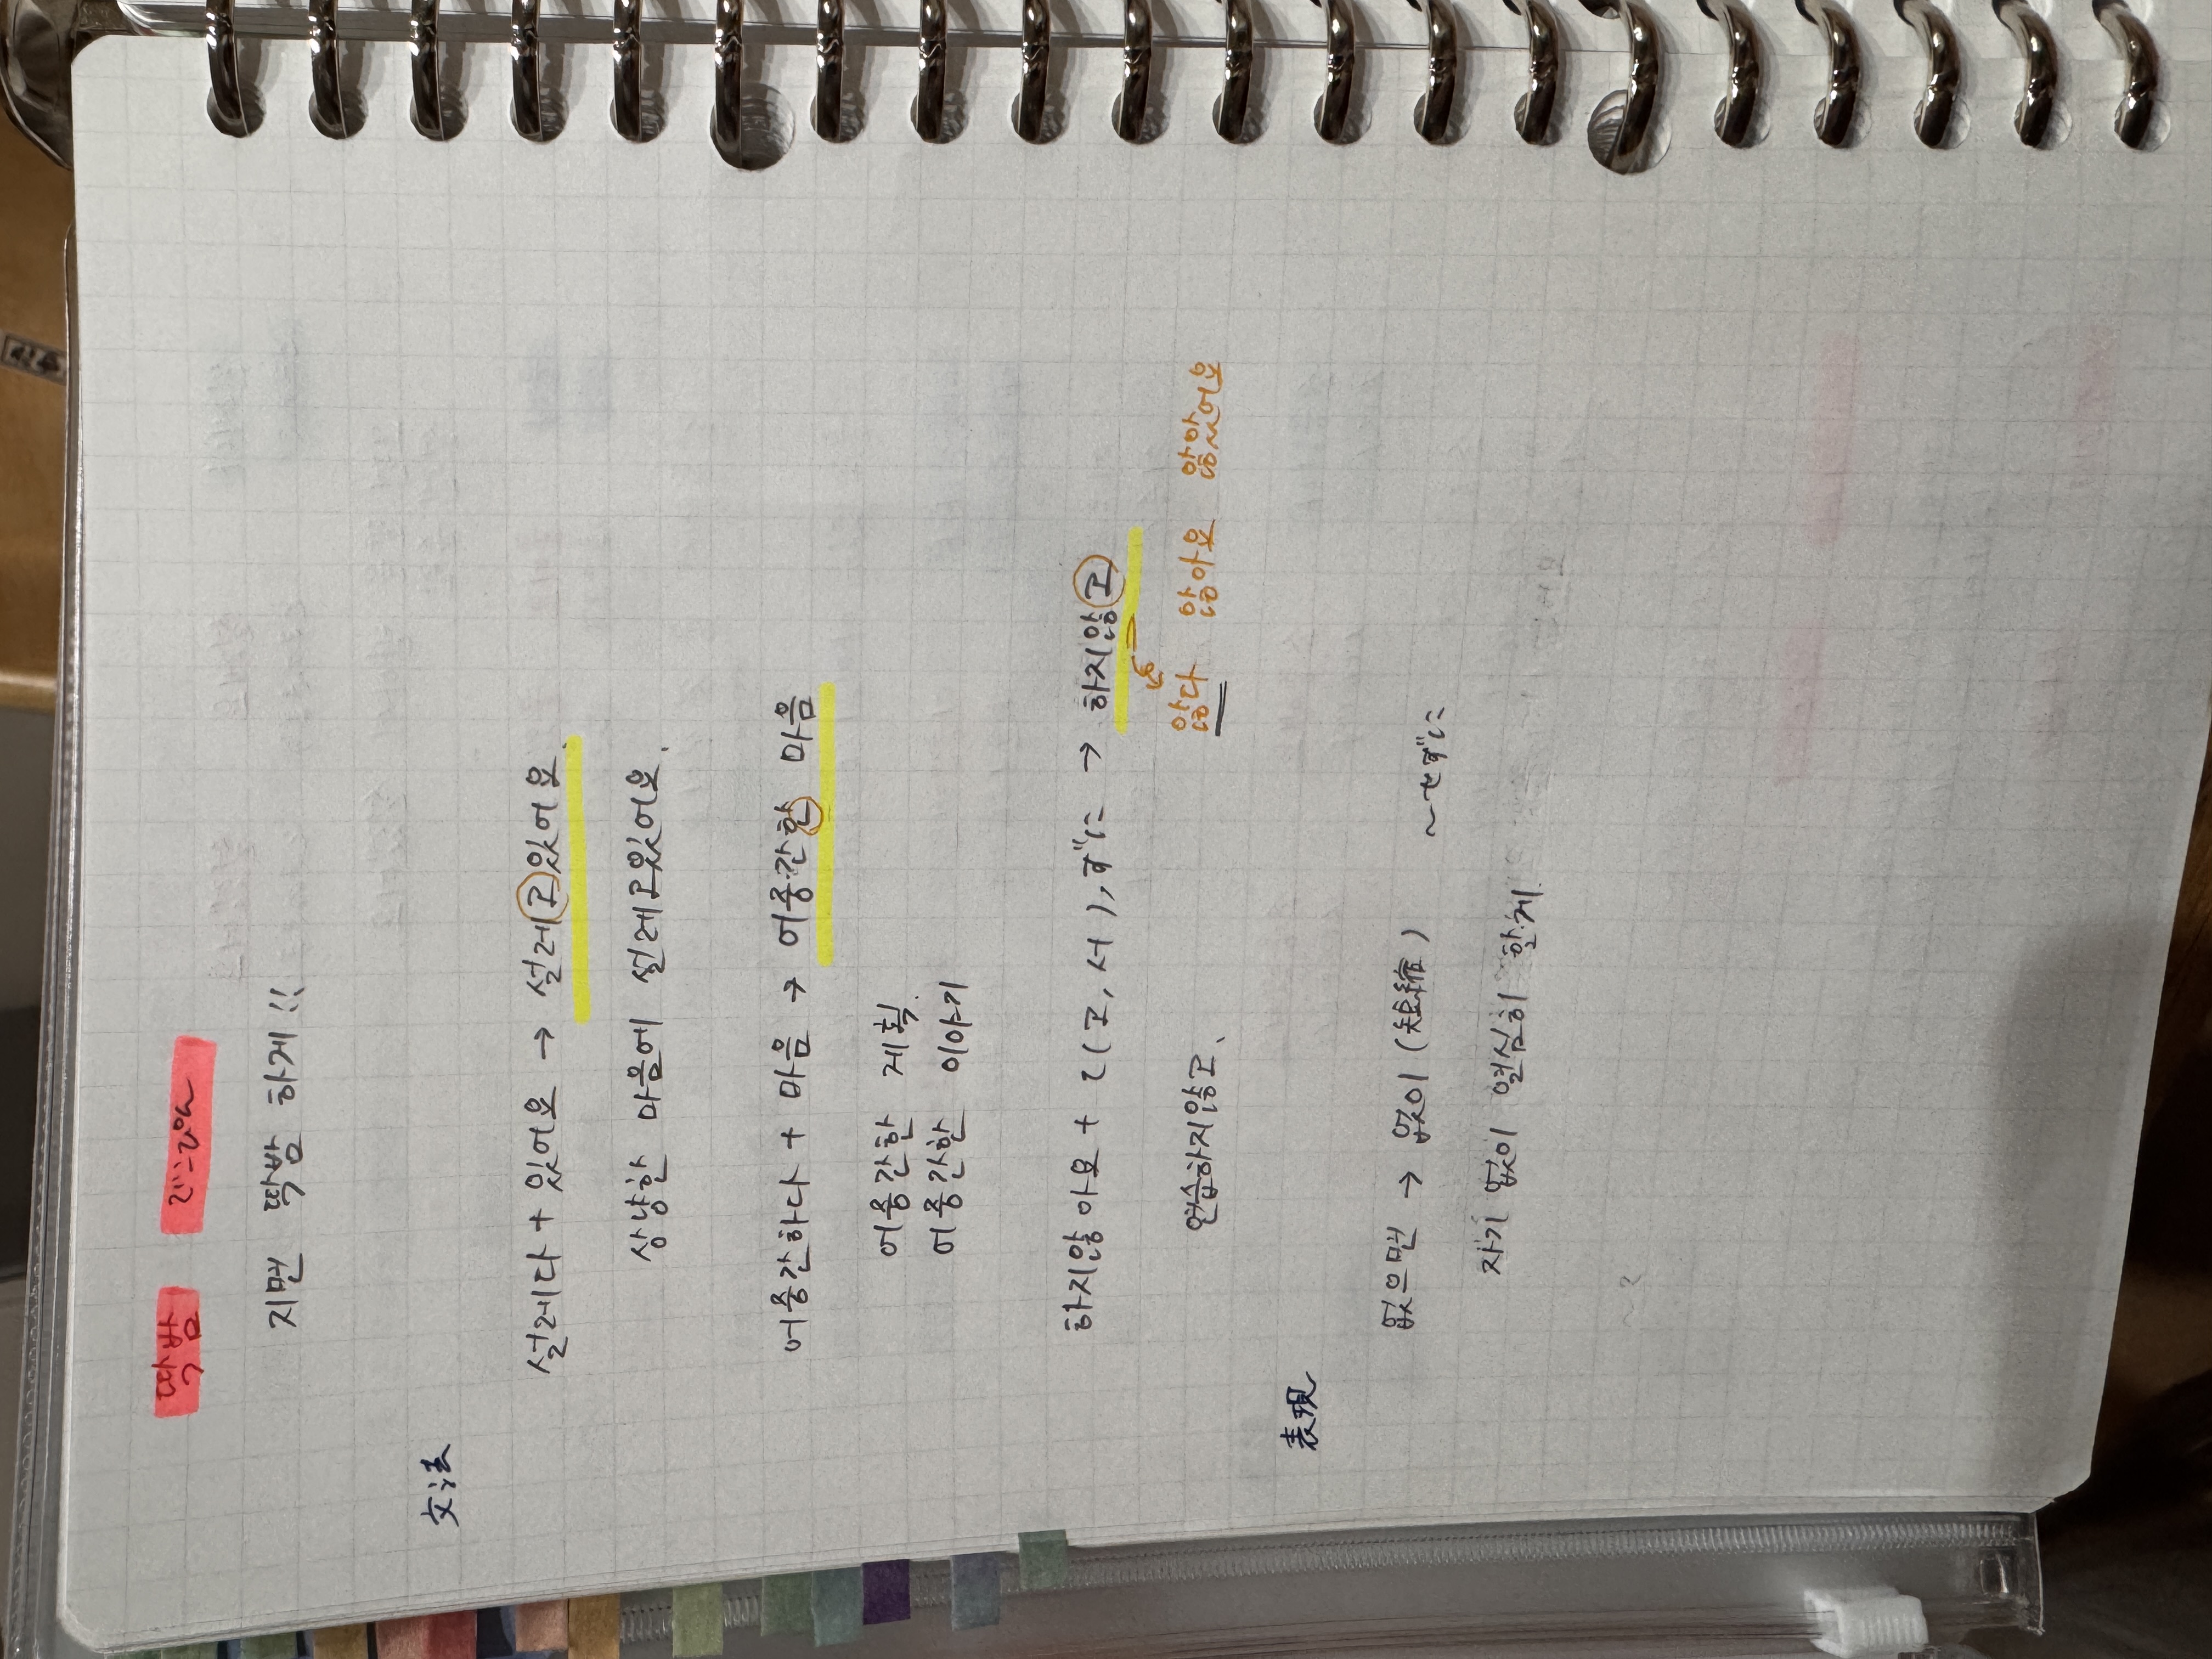 딱밤 デコピン
지면 딱밤 하게!!
文法
설레다 + 있어요 → 설레고있어요
상냥한 마음에 설레고있어요.
어중간하다 + 마음 → 어중간한 마음
어중간한 계획.
어중간한 이야기
하지않아요 + て(고, 서), ずに → 하지않고
않다 않아요 않았어요
연습하지않고、
表現
없으면 → 없이 (短縮) ~せずに
자기 없이 열심히 할게.
~?